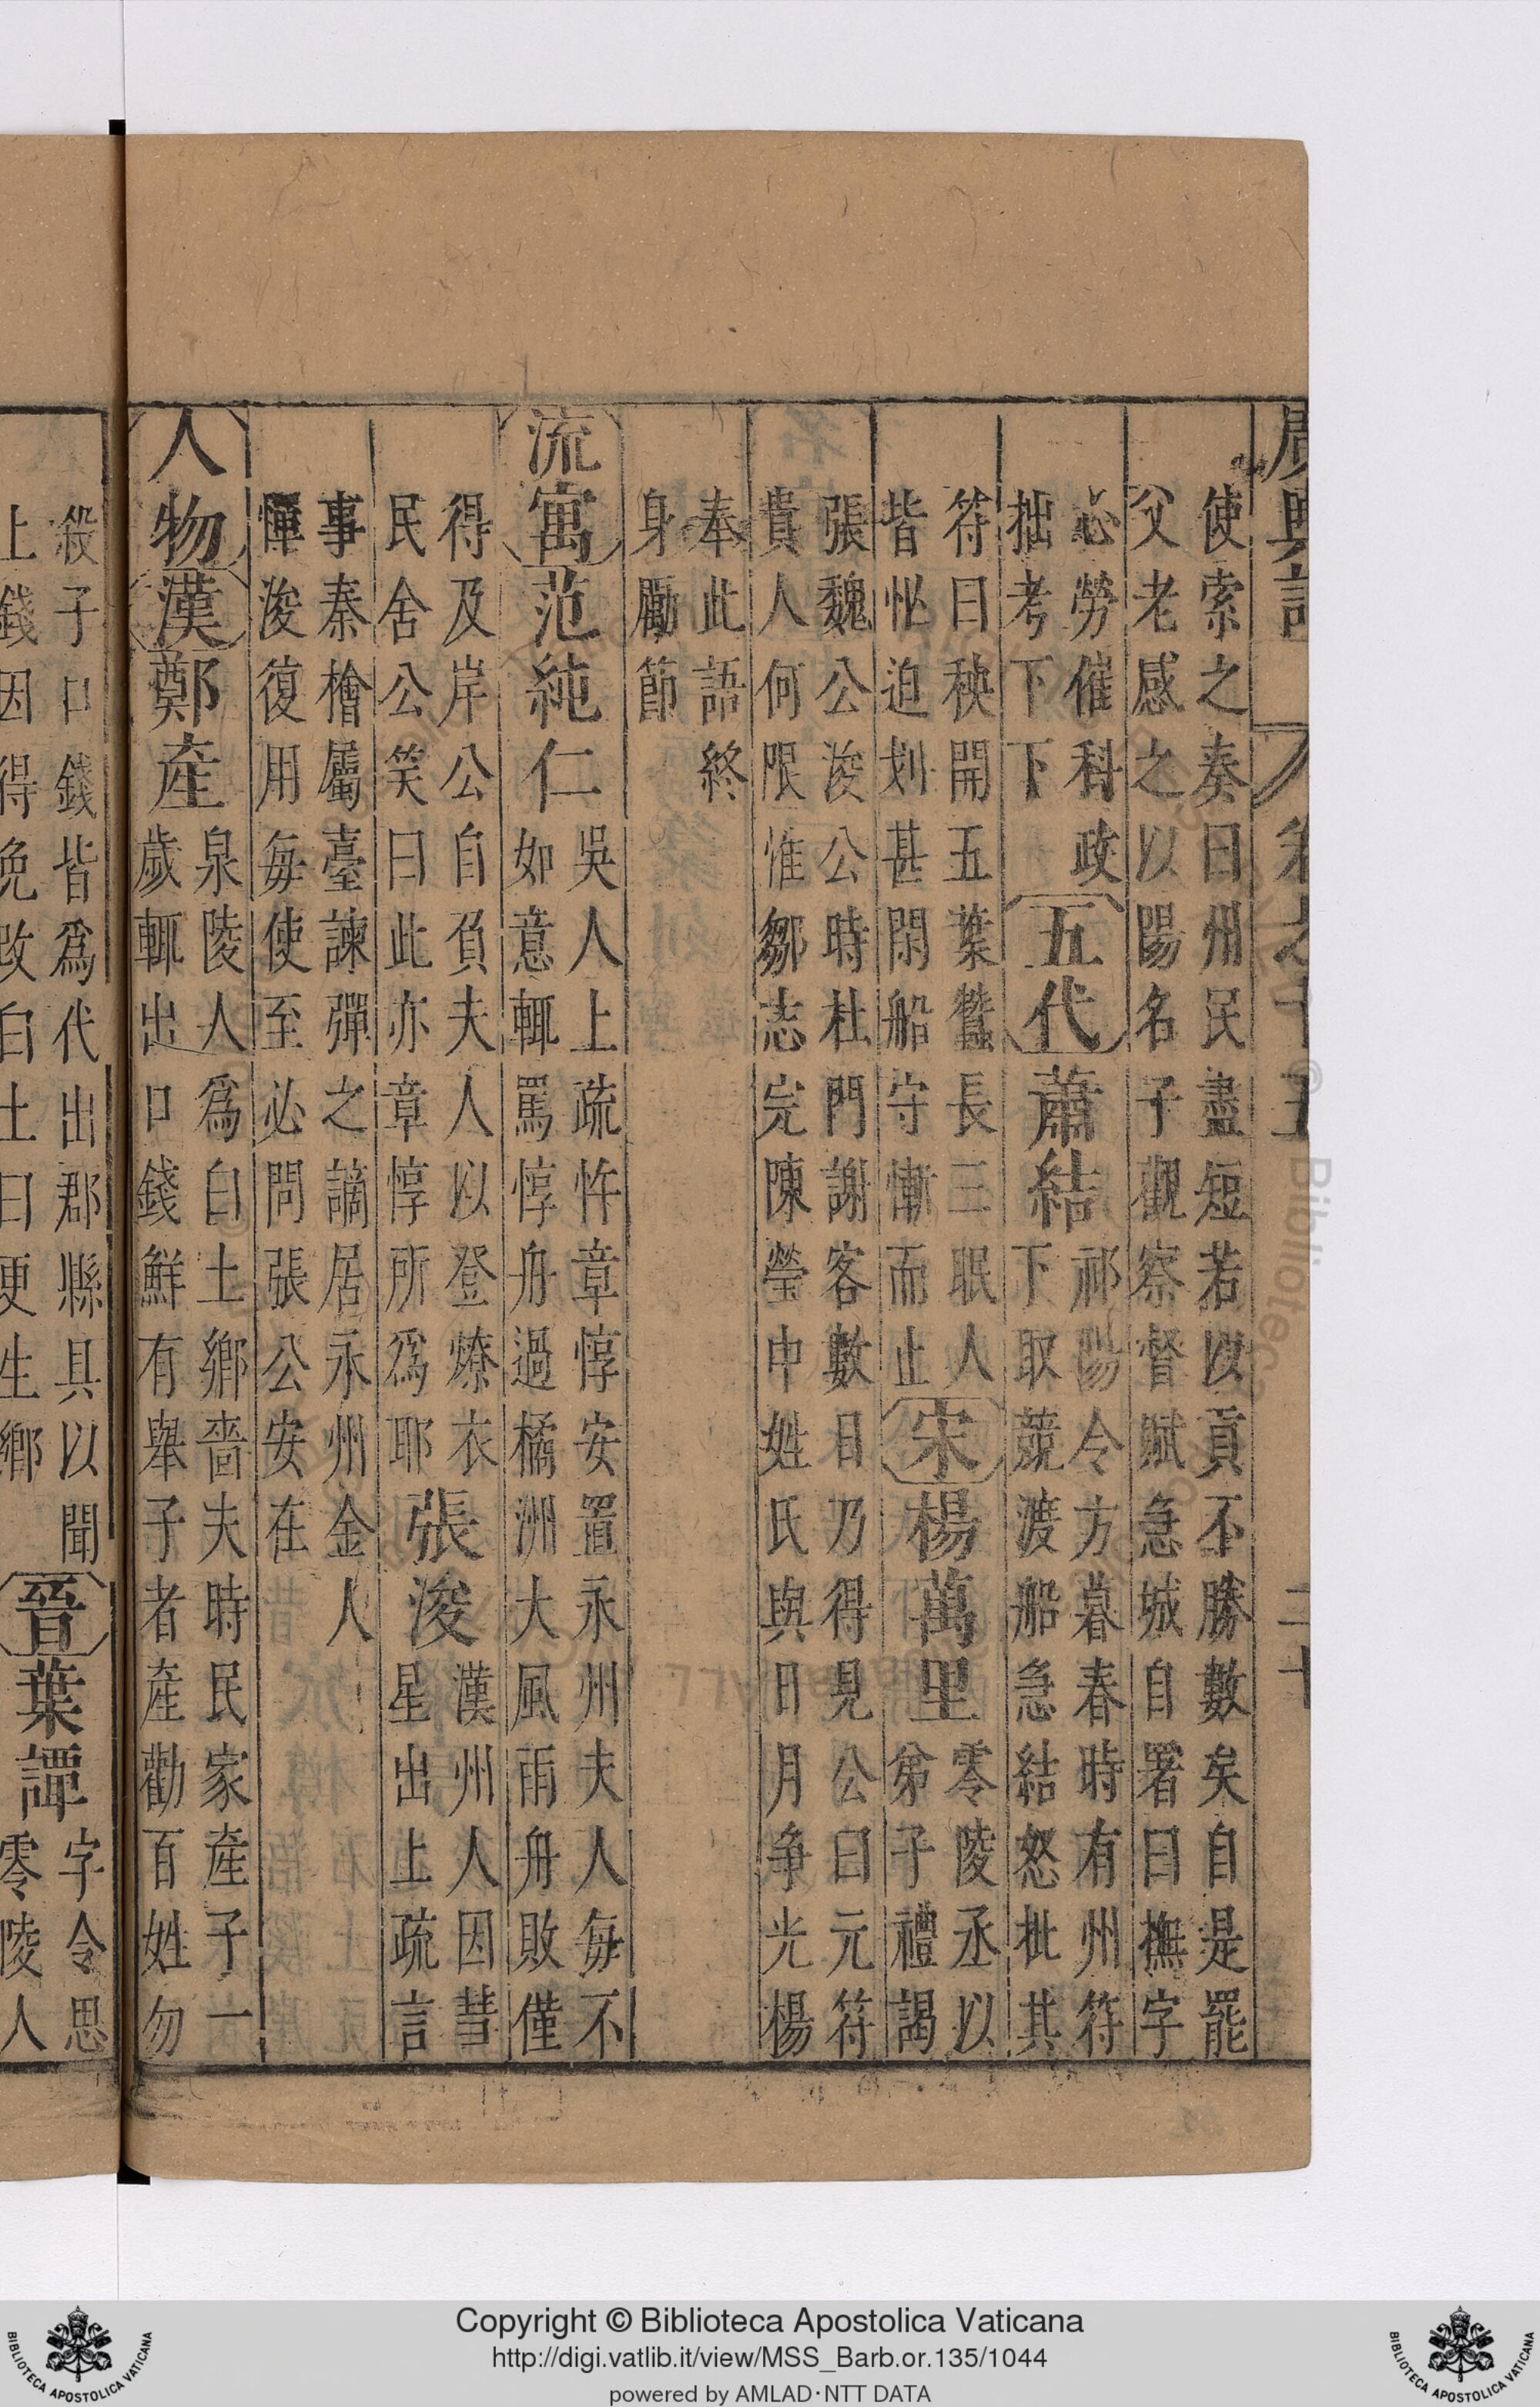 廣輿記 卷之十五 二十
使索之奏曰州民盡短若以貢不勝數矣自是罷
父老感之以陽名子觀察督賦急城自署曰撫字
心勞催科政
拙考下下
五代 蕭結
祁陽令方暮春時有州符
下取競渡船急結怒批其
符曰秧開五葉蠶長三眠人
皆忙迫划甚閑船守慚而止
宋 楊萬里
零陵丞以
弟子禮謁
張魏公浚公時杜門謝客數日乃得見公曰元符
貴人何限惟鄒志完陳瑩中姓氏與日月争光楊
奉此語終
身勵節
流寓 范純仁
吳人上疏忤章惇安置永州夫人每不
如意輒罵惇舟過橘洲大風雨舟敗僅
得及岸公自負夫人以登燎衣
民舍公笑曰此亦章惇所爲耶
張浚
漢州人因彗
星出上疏言
事秦檜屬臺諫彈之謫居永州金人
憚浚復用每使至必問張公安在
人物 漢 鄭産
泉陵人爲白土鄉嗇夫時民家産子一
歲輒出口錢鮮有舉子者産勸百姓勿
殺子口錢皆爲代出郡縣具以聞
上錢因得免改白土曰更生鄉
晉 葉譚
字令思
零陵人
Copyright © Biblioteca Apostolica Vaticana
http://digi.vatlib.it/view/MSS_Barb.or.135/1044
powered by AMLAD·NTT DATA
BIBLIOTECA APOSTOLICA VATICANA
BIBLIOTECA APOSTOLICA VATICANA